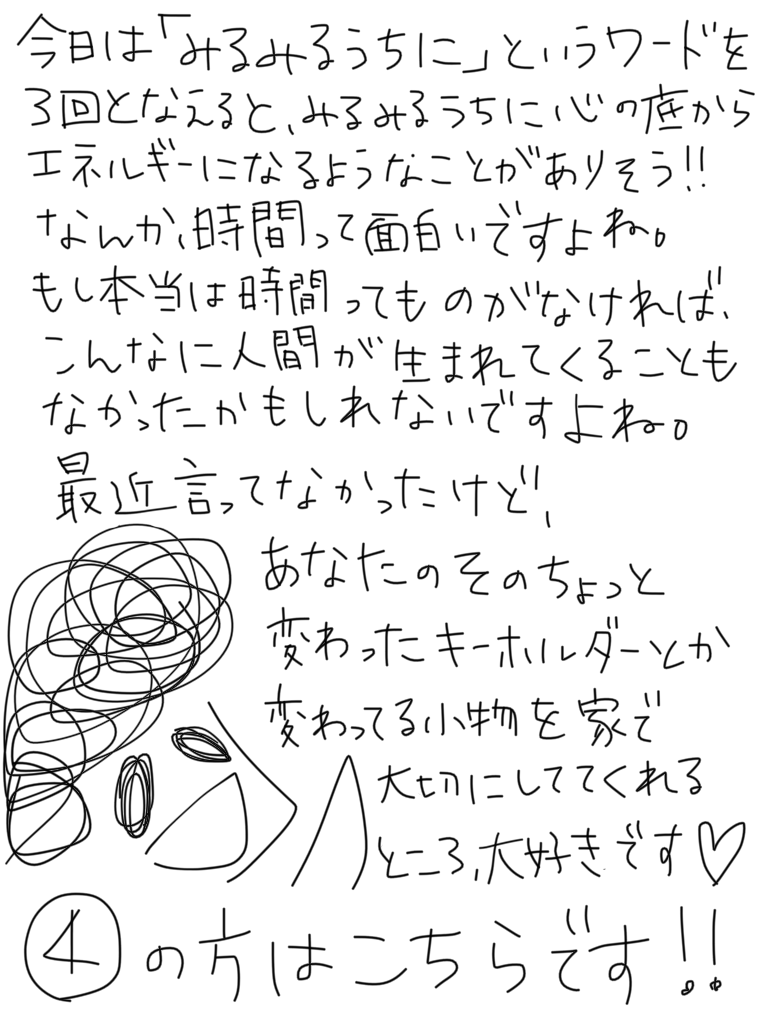 今日は「みるみるうちに」というワードを
3回となえると、みるみるうちに心の底から
エネルギーになるようなことがありそう!!
なんか、時間って面白いですよね。
もし本当は時間ってものがなければ、
こんなに人間が生まれてくることも
なかったかもしれないですよね。
最近言ってなかったけど、
あなたのそのちょっと
変わったキーホルダーとか
変わってる小物を家で
大切にしててくれる
ところ、大好きです♡
④の方はこちらです!!